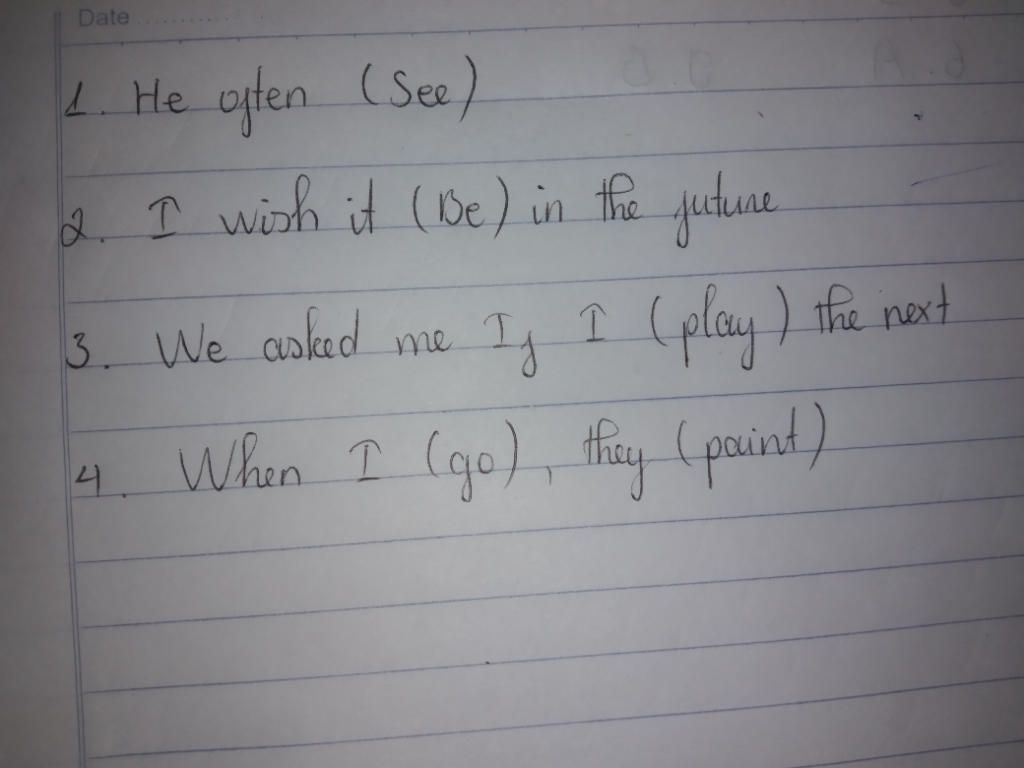 Date
1. He often (See)
2. I wish it (Be) in the future
3. We asked me If I (play) the next
4. When I (go), they (paint)